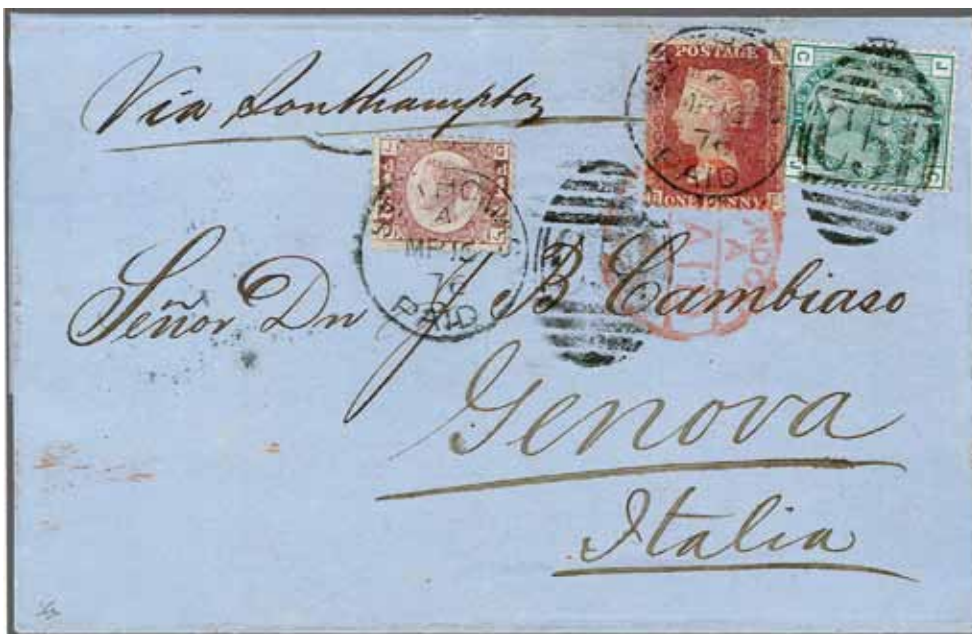 Via Southampton
POSTAGE
ONE PENNY
PAID
A
MR 16
PAID
C51
Señor Dn J B Cambiaso
Genova
Italia